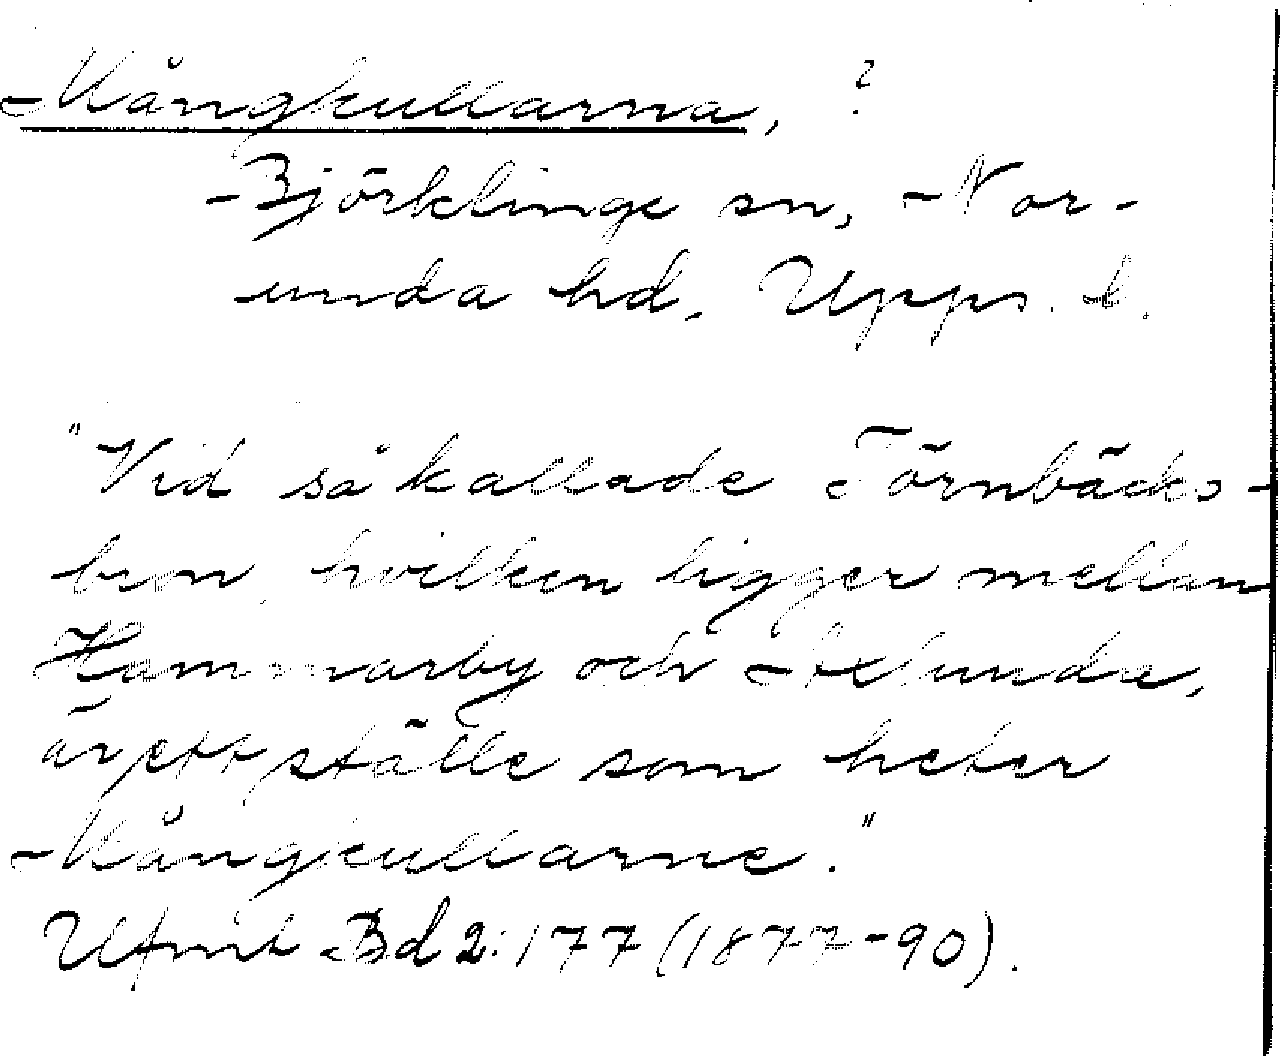 Mångkullarna, ?
Björklinge sn, Nor-
unda hd. Upps. l.
"Vid så kallade Törnbäcks-
bron, hvilken ligger mellan
Hammarby och Axlunda,
är ett ställe som heter
Mångkullarne."
Ufmt Bd 2:177 (1877-90).